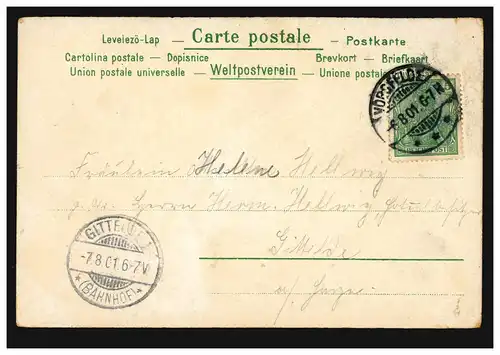 Levelezö-Lap — Carte postale — Postkarte
Cartolina postale — Dopisnice Brevkort — Briefkaart
Union postale universelle — Weltpostverein — Unione postale
VORSFELDE
-6.8.01.6-7N.
Fräulein Helene Hellwig
Herrn Herm. Hellwig
Gittelde
a/ Harze
GITTELDE 1
-7.8.01.6-7V
* (BAHNHOF) *